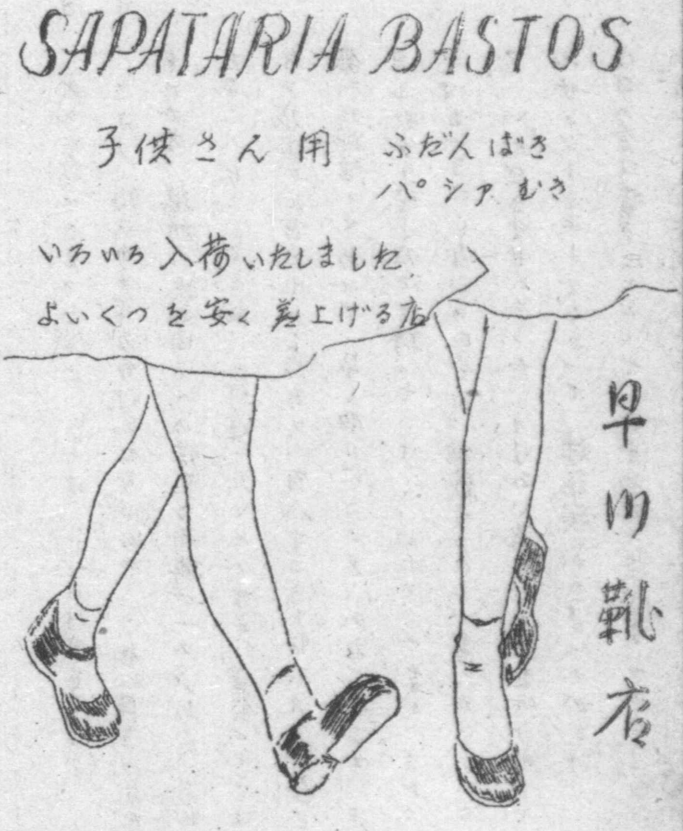 SAPATARIA BASTOS
子供さん用 ふだんばき
パシアむき
いろいろ入荷いたしました
よいくつを安く差上げる店
早川靴店